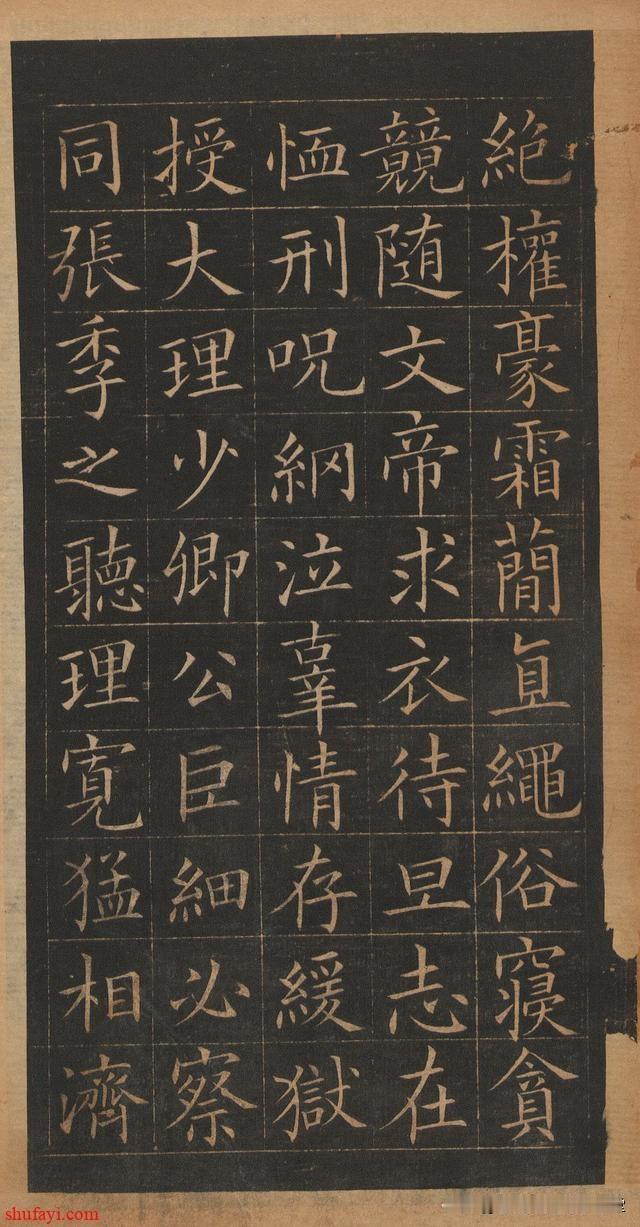 絶權豪霜蕳直繩俗寖貪
競隨文帝求衣待旦志在
恤刑呪網泣辜情存緩獄
授大理少卿公巨細必察
同張季之聽理寛猛相濟
shufayi.com